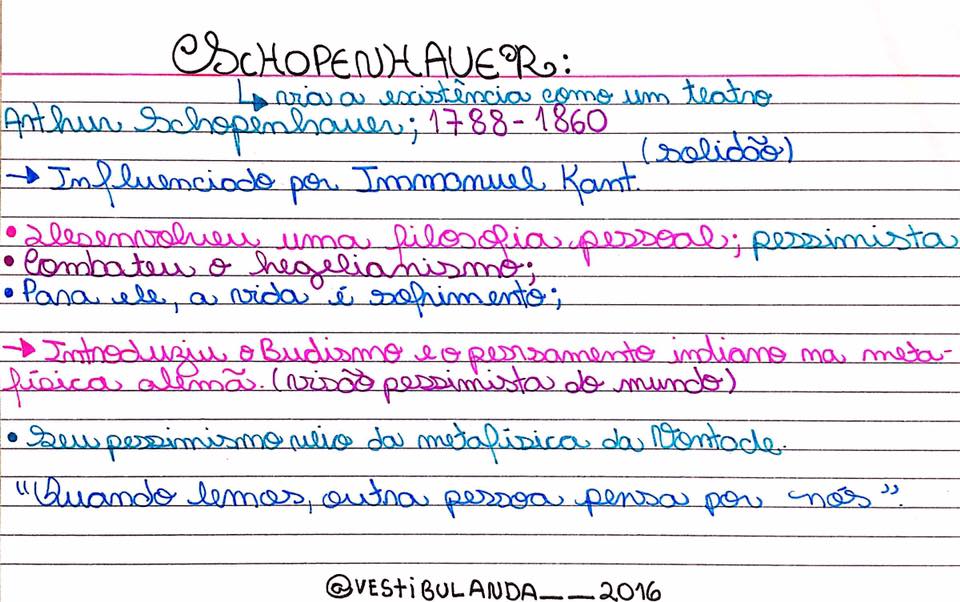 SCHOPENHAUER:
↳ via a existência como um teatro
Arthur Schopenhauer; 1788-1860
(solidão)
→ Influenciado por Immanuel Kant.
• Desenvolveu uma filosofia pessoal; pessimista
• Combateu o hegelianismo;
• Para ele, a vida é sofrimento;
→ Introduziu o Budismo e o pensamento indiano na meta-
física alemã. (visão pessimista do mundo)
• Seu pessimismo veio da metafísica da Vontade.
"Quando lemos, outra pessoa pensa por nós".
@VESTIBULANDA__2016